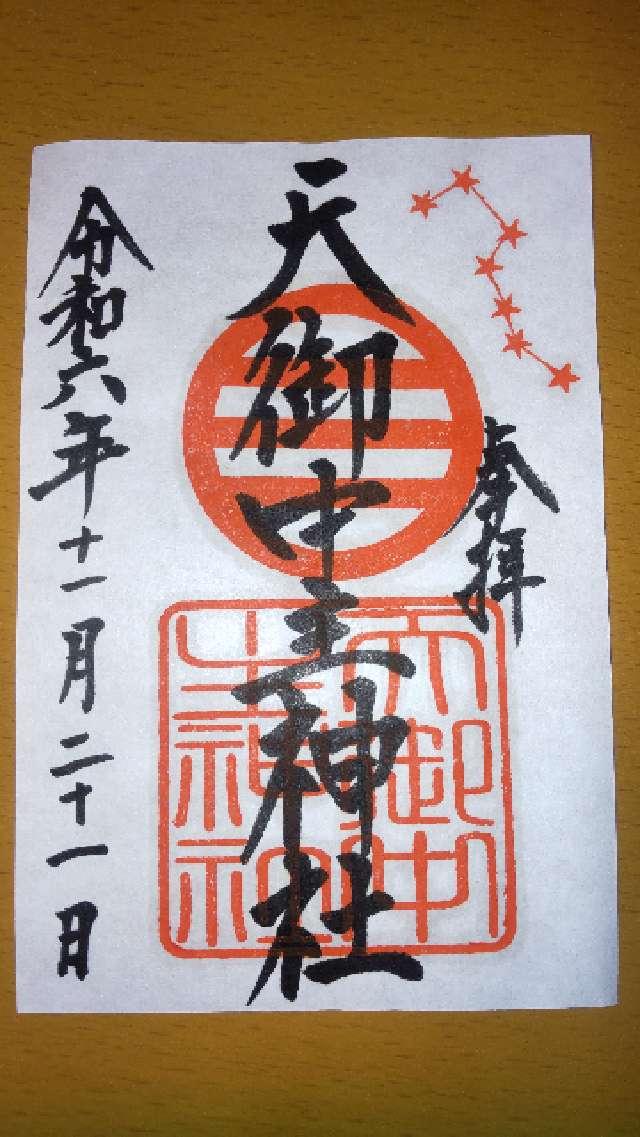 奉拝
天御中主神社
令和六年十一月二十一日
天御中
主神社